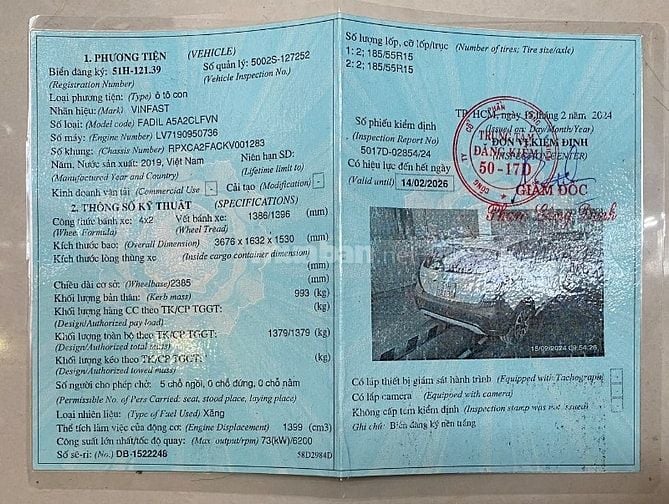 1. PHƯƠNG TIỆN (VEHICLE)
Biển đăng ký: 51H-121.39 Số quản lý: 5002S-127252
(Registration Number) (Vehicle Inspection No.)
Loại phương tiện: (Type) ô tô con
Nhãn hiệu: (Mark) VINFAST
Số loại: (Model code) FADIL A5A2CLFVN
Số máy: (Engine Number) LV7190950736
Số khung: (Chassis Number) RPXCA2FACKV001283
Năm, Nước sản xuất: 2019, Việt Nam Niên hạn SD:
(Manufactured Year and Country) (Lifetime limit to)
Kinh doanh vận tải (Commercial Use) - Cải tạo (Modification) -
2. THÔNG SỐ KỸ THUẬT (SPECIFICATIONS)
Công thức bánh xe: 4x2 Vết bánh xe: 1386/1396 (mm)
(Wheel Formula) (Wheel Tread)
Kích thước bao: (Overall Dimension) 3676 x 1632 x 1530 (mm)
Kích thước lòng thùng xe (Inside cargo container dimension)
(mm)
Chiều dài cơ sở: (Wheelbase) 2385 (mm)
Khối lượng bản thân: (Kerb mass) 993 (kg)
Khối lượng hàng CC theo TK/CP TGGT: (kg)
(Design/Authorized pay load)
Khối lượng toàn bộ theo TK/CP TGGT: 1379/1379 (kg)
(Design/Authorized total mass)
Khối lượng kéo theo TK/CP TGGT: (kg)
(Design/Authorized towed mass)
Số người cho phép chở: 5 chỗ ngồi, 0 chỗ đứng, 0 chỗ nằm
(Permissible No. of Pers Carried: seat, stood place, laying place)
Loại nhiên liệu: (Type of Fuel Used) Xăng
Thể tích làm việc của động cơ: (Engine Displacement) 1399 (cm3)
Công suất lớn nhất/tốc độ quay: (Max output/rpm) 73(kW)/6200
Số sê-ri: (No.) DB-1522248 58D2984D
Số lượng lốp, cỡ lốp/trục (Number of tires; Tire size/axle)
1: 2; 185/55R15
2: 2; 185/55R15
TP. HCM, ngày 15 tháng 2 năm 2024
(Issued on: Day/Month/Year)
Số phiếu kiểm định ĐƠN VỊ KIỂM ĐỊNH
(Inspection Report No) (INSPECTION CENTER)
5017D-02854/24
TRUNG TÂM
ĐĂNG KIỂM
50-17D
Có hiệu lực đến hết ngày
(Valid until) 14/02/2026
GIÁM ĐỐC
15/02/2024 09:54:26
Có lắp thiết bị giám sát hành trình (Equipped with Tachograph)
Có lắp camera (Equipped with camera)
Không cấp tem kiểm định (Inspection stamp was not issued)
Ghi chú: Biển đăng ký nền trắng